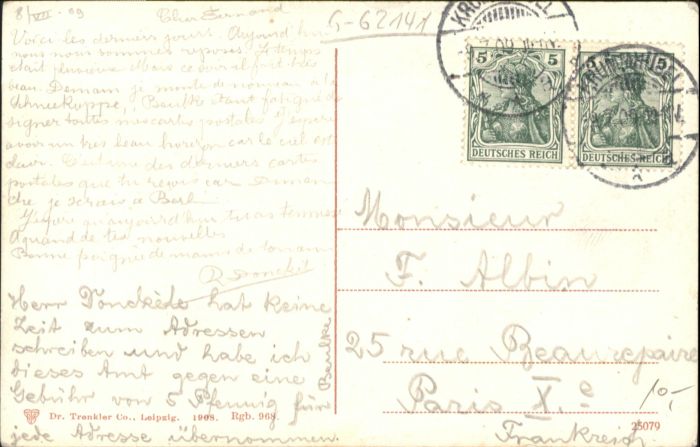 8/VII - 09 Cher Fernand
G-6214A
Voici les derniers jours. Aujourd'hui
nous nous sommes reposés. Le temps
était pluvieux. Mais ce soir il fait très
beau. Demain je monte de nouveau à la
Schneekoppe, Beulke étant fatigué de
signer toutes mes cartes postales. J'espère
avoir un très beau horizon car le ciel est
clair. C'est une des dernières cartes
postales que tu reçois car Diman
che je serais à Berlin
J'espère qu'aujourd'hui tu as terminé
A quand de tes nouvelles
Bonne poignée de mains de ton ami
R Donckèle
Herr Donckèle hat keine
Zeit zum Adressen
schreiben und habe ich
dieses Amt gegen eine
Gebühr von 5 Pfennig für
jede Adresse übernommen.
Beulke
Dr. Trenkler Co., Leipzig. 1908. Rgb. 968.
5 5
DEUTSCHES REICH DEUTSCHES REICH
Monsieur
F. Albin
25 rue Beaurepaire
Paris X.e
Frankreich
10,-
25079